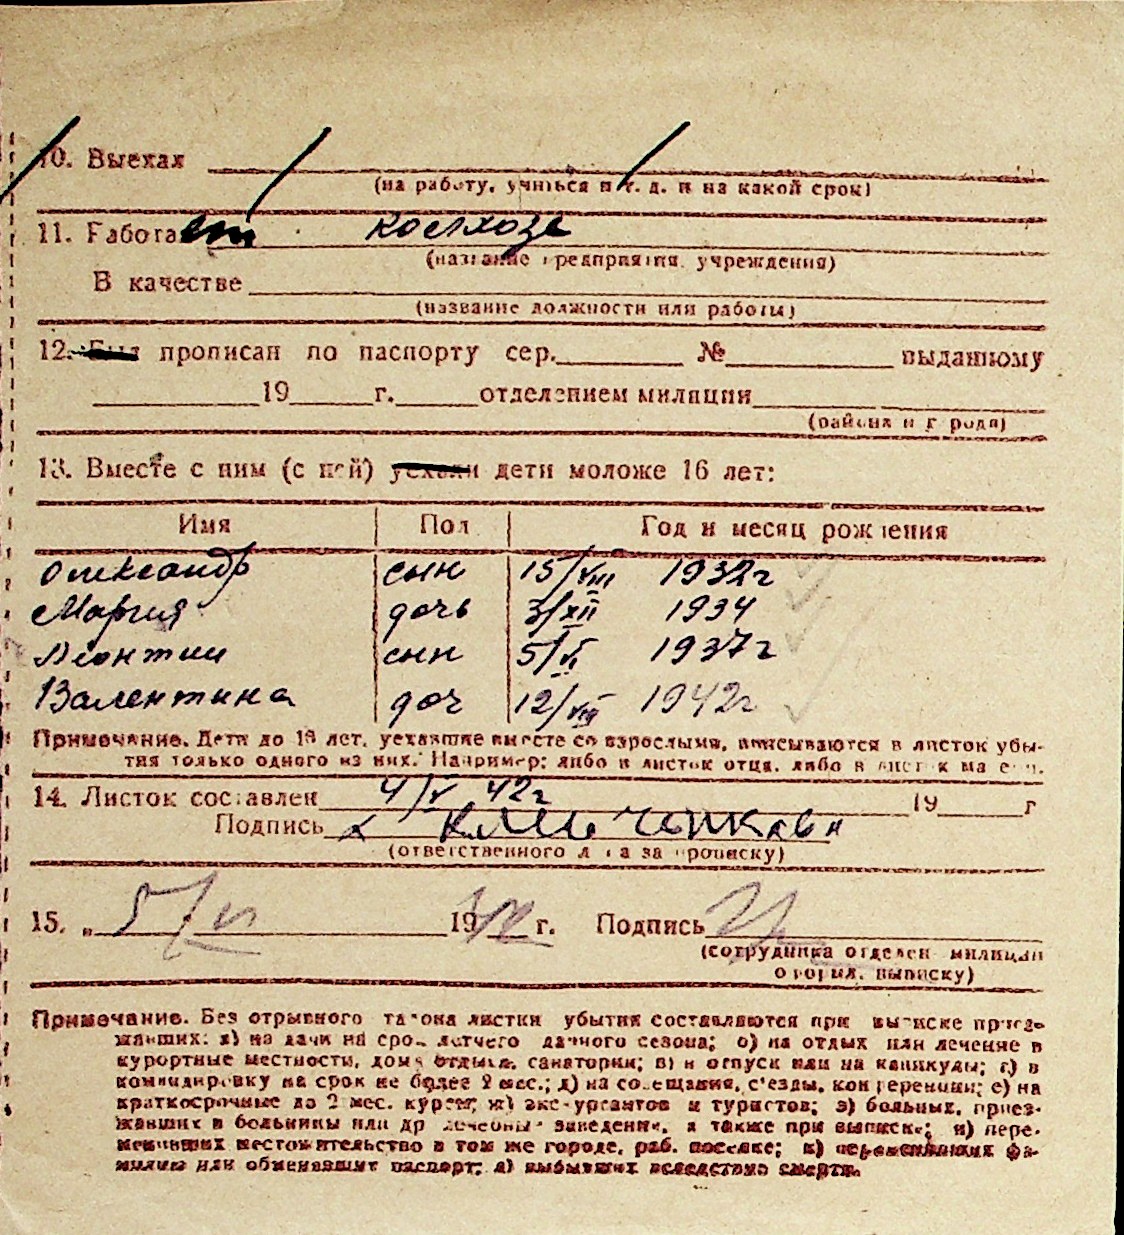 10. Выехал
(на работу, учиться и т. д. и на какой срок)
11. Работает колхозе
(название предприятия, учреждения)
В качестве
(название должности или работы)
12. Был прописан по паспорту сер. № выданному
19 г. отделением милиции
(района и города)
13. Вместе с ним (с ней) уехали дети моложе 16 лет:
Имя Пол Год и месяц рождения
Олександр сын 15/VIII 1932г
Мария дочь 3/XII 1934
Леонтий сын 5/II 1937г
Валентина доч 12/VIII 1942г
Примечание. Дети до 16 лет, уехавшие вместе со взрослыми, вписываются в листок убы-
тия только одного из них. Например: либо в листок отца, либо в листок матери.
14. Листок составлен 4/V 42г 19 г
Подпись
(ответственного лица за прописку)
15. „ 5/VI 1942 г. Подпись
(сотрудника отделен. милиции
оформл. выписку)
Примечание. Без отрывного талона листки убытия составляются при выписке приез-
жавших: а) на дачи на срок летнего дачного сезона; б) на отдых или лечение в
курортные местности, дома отдыха, санатории; в) в отпуск или на каникулы; г) в
командировку на срок не более 2 мес.; д) на совещания, с'езды, конференции; е) на
краткосрочные до 2 мес. курсы; ж) экскурсантов и туристов; з) больных, приез-
жавших в больницы или др лечебные заведения, а также при выписке; и) пере-
менивших местожительство в том же городе, раб. поселке; к) переменивших фа-
милию или обменявших паспорт; л) выбывших вследствие смерти.